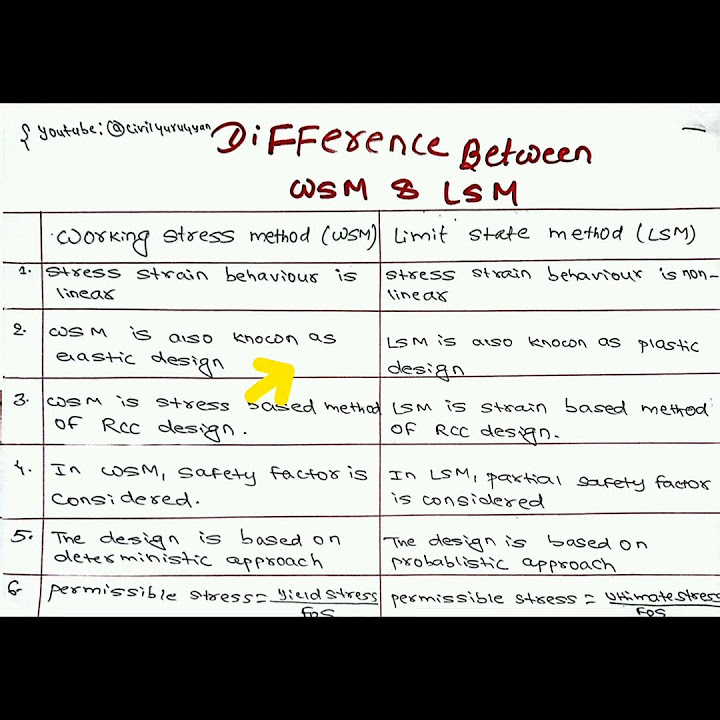 { Youtube: @civilyuruyyan
Difference Between
WSM & LSM
Working stress method (WSM)
Limit state method (LSM)
1.
stress strain behaviour is
linear
stress strain behaviour is non-
linear
2.
WSM is also known as
elastic design
LSM is also known as plastic
design
3.
WSM is stress based method
OF RCC design.
LSM is strain based method
OF RCC design.
4.
In WSM, safety factor is
considered.
In LSM, partial safety factor
is considered
5.
The design is based on
deterministic approach
The design is based on
probablistic approach
6
permissible stress = Yield stress
FOS
permissible stress = Ultimate stress
FOS